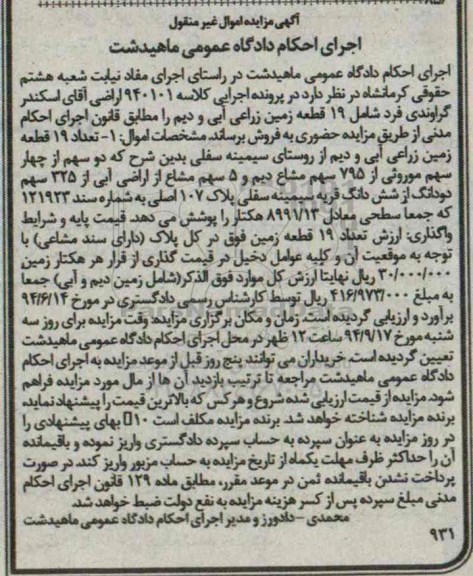 آگهی مزایده اموال غیر منقول
اجرای احکام دادگاه عمومی ماهیدشت
اجرای احکام دادگاه عمومی ماهیدشت در راستای اجرای مفاد نیابت شعبه هشتم
حقوقی کرمانشاه در نظر دارد در پرونده اجرایی کلاسه ۹۴۰۱۰۱ اراضی آقای اسکندر
گراوندی فرد شامل ۱۹ قطعه زمین زراعی آبی و دیم را مطابق قانون اجرای احکام
مدنی از طریق مزایده حضوری به فروش برساند. مشخصات اموال: ۱- تعداد ۱۹ قطعه
زمین زراعی آبی و دیم از روستای سیمینه سفلی بدین شرح که دو سهم از چهار
سهم موروثی از ۷۹۵ سهم مشاع دیم و ۵ سهم مشاع از اراضی آبی از ۳۲۵ سهم
دودانگ از شش دانگ قریه سیمینه سفلی پلاک ۱۰۷ اصلی به شماره سند ۱۲۱۹۲۳
که جمعا سطحی معادل ۸۹۹۱/۱۳ هکتار را پوشش می دهد. قیمت پایه و شرایط
واگذاری: ارزش تعداد ۱۹ قطعه زمین فوق در کل پلاک (دارای سند مشاعی) با
توجه به موقعیت آن و کلیه عوامل دخیل در قیمت گذاری از قرار هر هکتار زمین
۳۰/۰۰۰/۰۰۰ ریال نهایتا ارزش کل موارد فوق الذکر (شامل زمین دیم و آبی) جمعا
به مبلغ ۴۱۶/۹۷۳/۰۰۰ ریال توسط کارشناس رسمی دادگستری در مورخ ۹۴/۶/۱۴
برآورد و ارزیابی گردیده است. زمان و مکان برگزاری مزایده: وقت مزایده برای روز سه
شنبه مورخ ۹۴/۹/۱۷ ساعت ۱۲ ظهر در محل اجرای احکام دادگاه عمومی ماهیدشت
تعیین گردیده است. خریداران می توانند پنج روز قبل از موعد مزایده به اجرای احکام
دادگاه عمومی ماهیدشت مراجعه تا ترتیب بازدید آن ها از مال مورد مزایده فراهم
شود. مزایده از قیمت ارزیابی شده شروع و هر کس که بالاترین قیمت را پیشنهاد نماید،
برنده مزایده شناخته خواهد شد. برنده مزایده مکلف است ۱۰□ بهای پیشنهادی را
در روز مزایده به عنوان سپرده به حساب سپرده دادگستری واریز نموده و باقیمانده
آن را حداکثر ظرف مهلت یکماه از تاریخ مزایده به حساب مزبور واریز کند. در صورت
پرداخت نشدن باقیمانده ثمن در موعد مقرر، مطابق ماده ۱۲۹ قانون اجرای احکام
مدنی مبلغ سپرده پس از کسر هزینه مزایده به نفع دولت ضبط خواهد شد.
محمدی - دادورز و مدیر اجرای احکام دادگاه عمومی ماهیدشت
۹۳۱